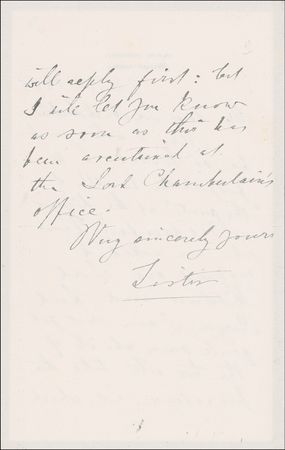 will apply first: but
I will let you know
as soon as this has
been ascertained at
the Lord Chamberlain's
office.
Very sincerely yours
Lister